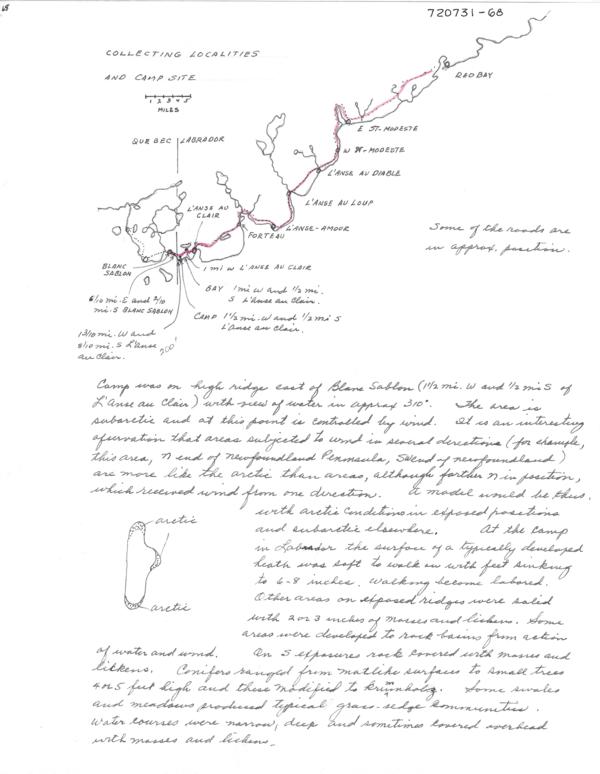 68
720731-68
COLLECTING LOCALITIES
AND CAMP SITE
1 2 3 4 5
MILES
RED BAY
E ST-MODESTE
QUEBEC LABRADOR
W ST-MODESTE
L'ANSE AU DIABLE
L'ANSE AU LOUP
L'ANSE AU
CLAIR
L'ANSE-AMOUR
FORTEAU
Some of the roads are
in approx. position.
BLANC
SABLON
1 mi W L'ANSE AU CLAIR
BAY 1 mi W and 1/2 mi.
S L'Anse au Clair.
6/10 mi. E and 2/10
mi. S BLANC SABLON
CAMP 1 1/2 mi. W and 1/2 mi S
L'Anse au Clair.
1 3/10 mi. W and
8/10 mi. S L'Anse
au Clair. 200'
Camp was on high ridge east of Blanc Sablon (1 1/2 mi. W and 1/2 mi S of
L'Anse au Clair) with view of water in approx 310°. The area is
subarctic and at this point is controlled by wind. It is an interesting
that areas subjected to wind in several directions (for example,
this area, N end of Newfoundland Peninsula, SW end of Newfoundland)
are more like the arctic than areas, although farther N in position,
which received wind from one direction. A model would be thus.
with arctic conditions in exposed positions
and subarctic elsewhere. At the camp
in Labrador the surface of a typically developed
heath was soft to walk on with feet sinking
to 6-8 inches. Walking become labored.
Other areas on exposed ridges were solid
with 2 or 3 inches of mosses and lichens. Some
areas were developed to rock basins from action
arctic
arctic
of water and wind. On S exposures rock covered with mosses and
lichens. Conifers ranged from matlike surfaces to small trees
4 or 5 feet high and these modified to Krumholtz. Some swales
and meadows produced typical grass-sedge communities.
Water courses were narrow, deep and sometimes covered overhead
with mosses and lichens.